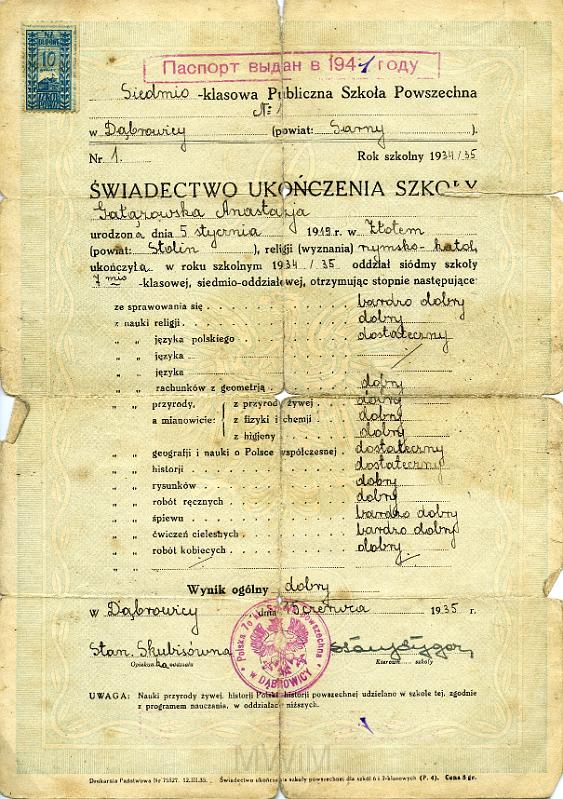 NA
BUDOWĘ
10
SZKÓŁ
Паспорт выдан в 1941 году
Siedmio -klasowa Publiczna Szkoła Powszechna
Nr 1
w Dąbrowicy (powiat: Sarny ).
Nr 1. Rok szkolny 1934/35
ŚWIADECTWO UKOŃCZENIA SZKOŁY
Gatązowska Anastazja
urodzona dnia 5 stycznia 1919 r. w Złotem
(powiat: Stolin ), religii (wyznania) rzymsko-katol.
ukończyła w roku szkolnym 1934/35 oddział siódmy szkoły
7 mio -klasowej, siedmio-oddziałowej, otrzymując stopnie następujące:
ze sprawowania się bardzo dobry
z nauki religii dobry
„ „ języka polskiego dostateczny
„ „ języka
„ „ języka
„ „ rachunków z geometrją dobry
„ „ przyrody, z przyrody żywej dobry
a mianowicie: z fizyki i chemji dobry
z higjeny dobry
„ „ geografji i nauki o Polsce współczesnej dostateczny
„ „ historji dostateczny
„ „ rysunków dobry
„ „ robót ręcznych dobry
„ „ śpiewu bardzo dobry
„ „ ćwiczeń cielesnych bardzo dobry
„ „ robót kobiecych dobry
„ „
Wynik ogólny dobry
w Dąbrowicy dnia czerwca 1935 r.
Stan. Skubisówna
Opiekunka oddziału Kierown. szkoły
Polska 7o kl. Szkoła Powszechna
w DĄBROWICY
UWAGA: Nauki przyrody żywej, historji Polski, historji powszechnej udzielano w szkole tej, zgodnie
z programem nauczania, w oddziałach niższych.
MWiM
Drukarnia Państwowa Nr 71527. 12.III.35. Świadectwo ukończenia szkoły powszechnej dla szkół 6 i 7-klasowych (P. 4). Cena 5 gr.